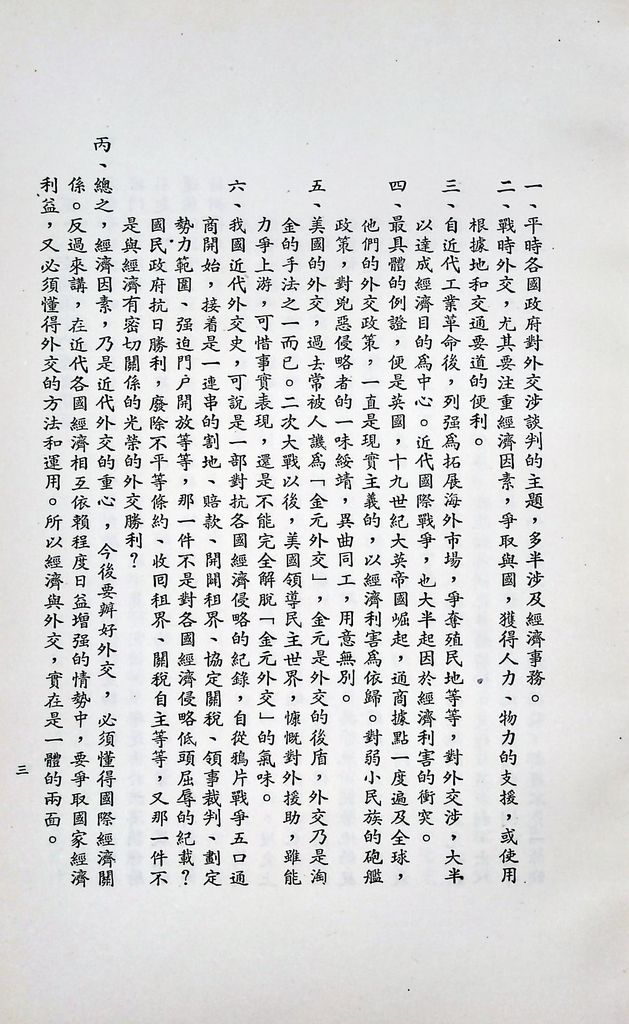 一、平時各國政府對外交涉談判的主題，多半涉及經濟事務。
二、戰時外交，尤其要注重經濟因素，爭取與國，獲得人力、物力的支援，或使用
根據地和交通要道的便利。
三、自近代工業革命後，列强爲拓展海外市場，爭奪殖民地等等，對外交涉，大半
以達成經濟目的爲中心。近代國際戰爭，也大半起因於經濟利害的衝突。
四、最具體的例證，便是英國，十九世紀大英帝國崛起，通商據點一度遍及全球，
他們的外交政策，一直是現實主義的，以經濟利害爲依歸。對弱小民族的砲艦
政策，對兇惡侵略者的一味綏靖，異曲同工，用意無別。
五、美國的外交，過去常被人譏爲「金元外交」，金元是外交的後盾，外交乃是淘
金的手法之一而已。二次大戰以後，美國領導民主世界，慷慨對外援助，雖能
力爭上游，可惜事實表現，還是不能完全解脫「金元外交」的氣味。
六、我國近代外交史，可說是一部對抗各國經濟侵略的紀錄，自從鴉片戰爭五口通
商開始，接着是一連串的割地、賠款、開闢租界、協定關税、領事裁判、劃定
勢力範圍、强迫門户開放等等，那一件不是對各國經濟侵略低頭屈辱的紀載？
國民政府抗日勝利，廢除不平等條約、收回租界、關税自主等等，又那一件不
是與經濟有密切關係的光榮的外交勝利？
丙、總之，經濟因素，乃是近代外交的重心，今後要辦好外交，必須懂得國際經濟關
係。反過來講，在近代各國經濟相互依賴程度日益增强的情勢中，要爭取國家經濟
利益，又必須懂得外交的方法和運用。所以經濟與外交，實在是一體的兩面。
三